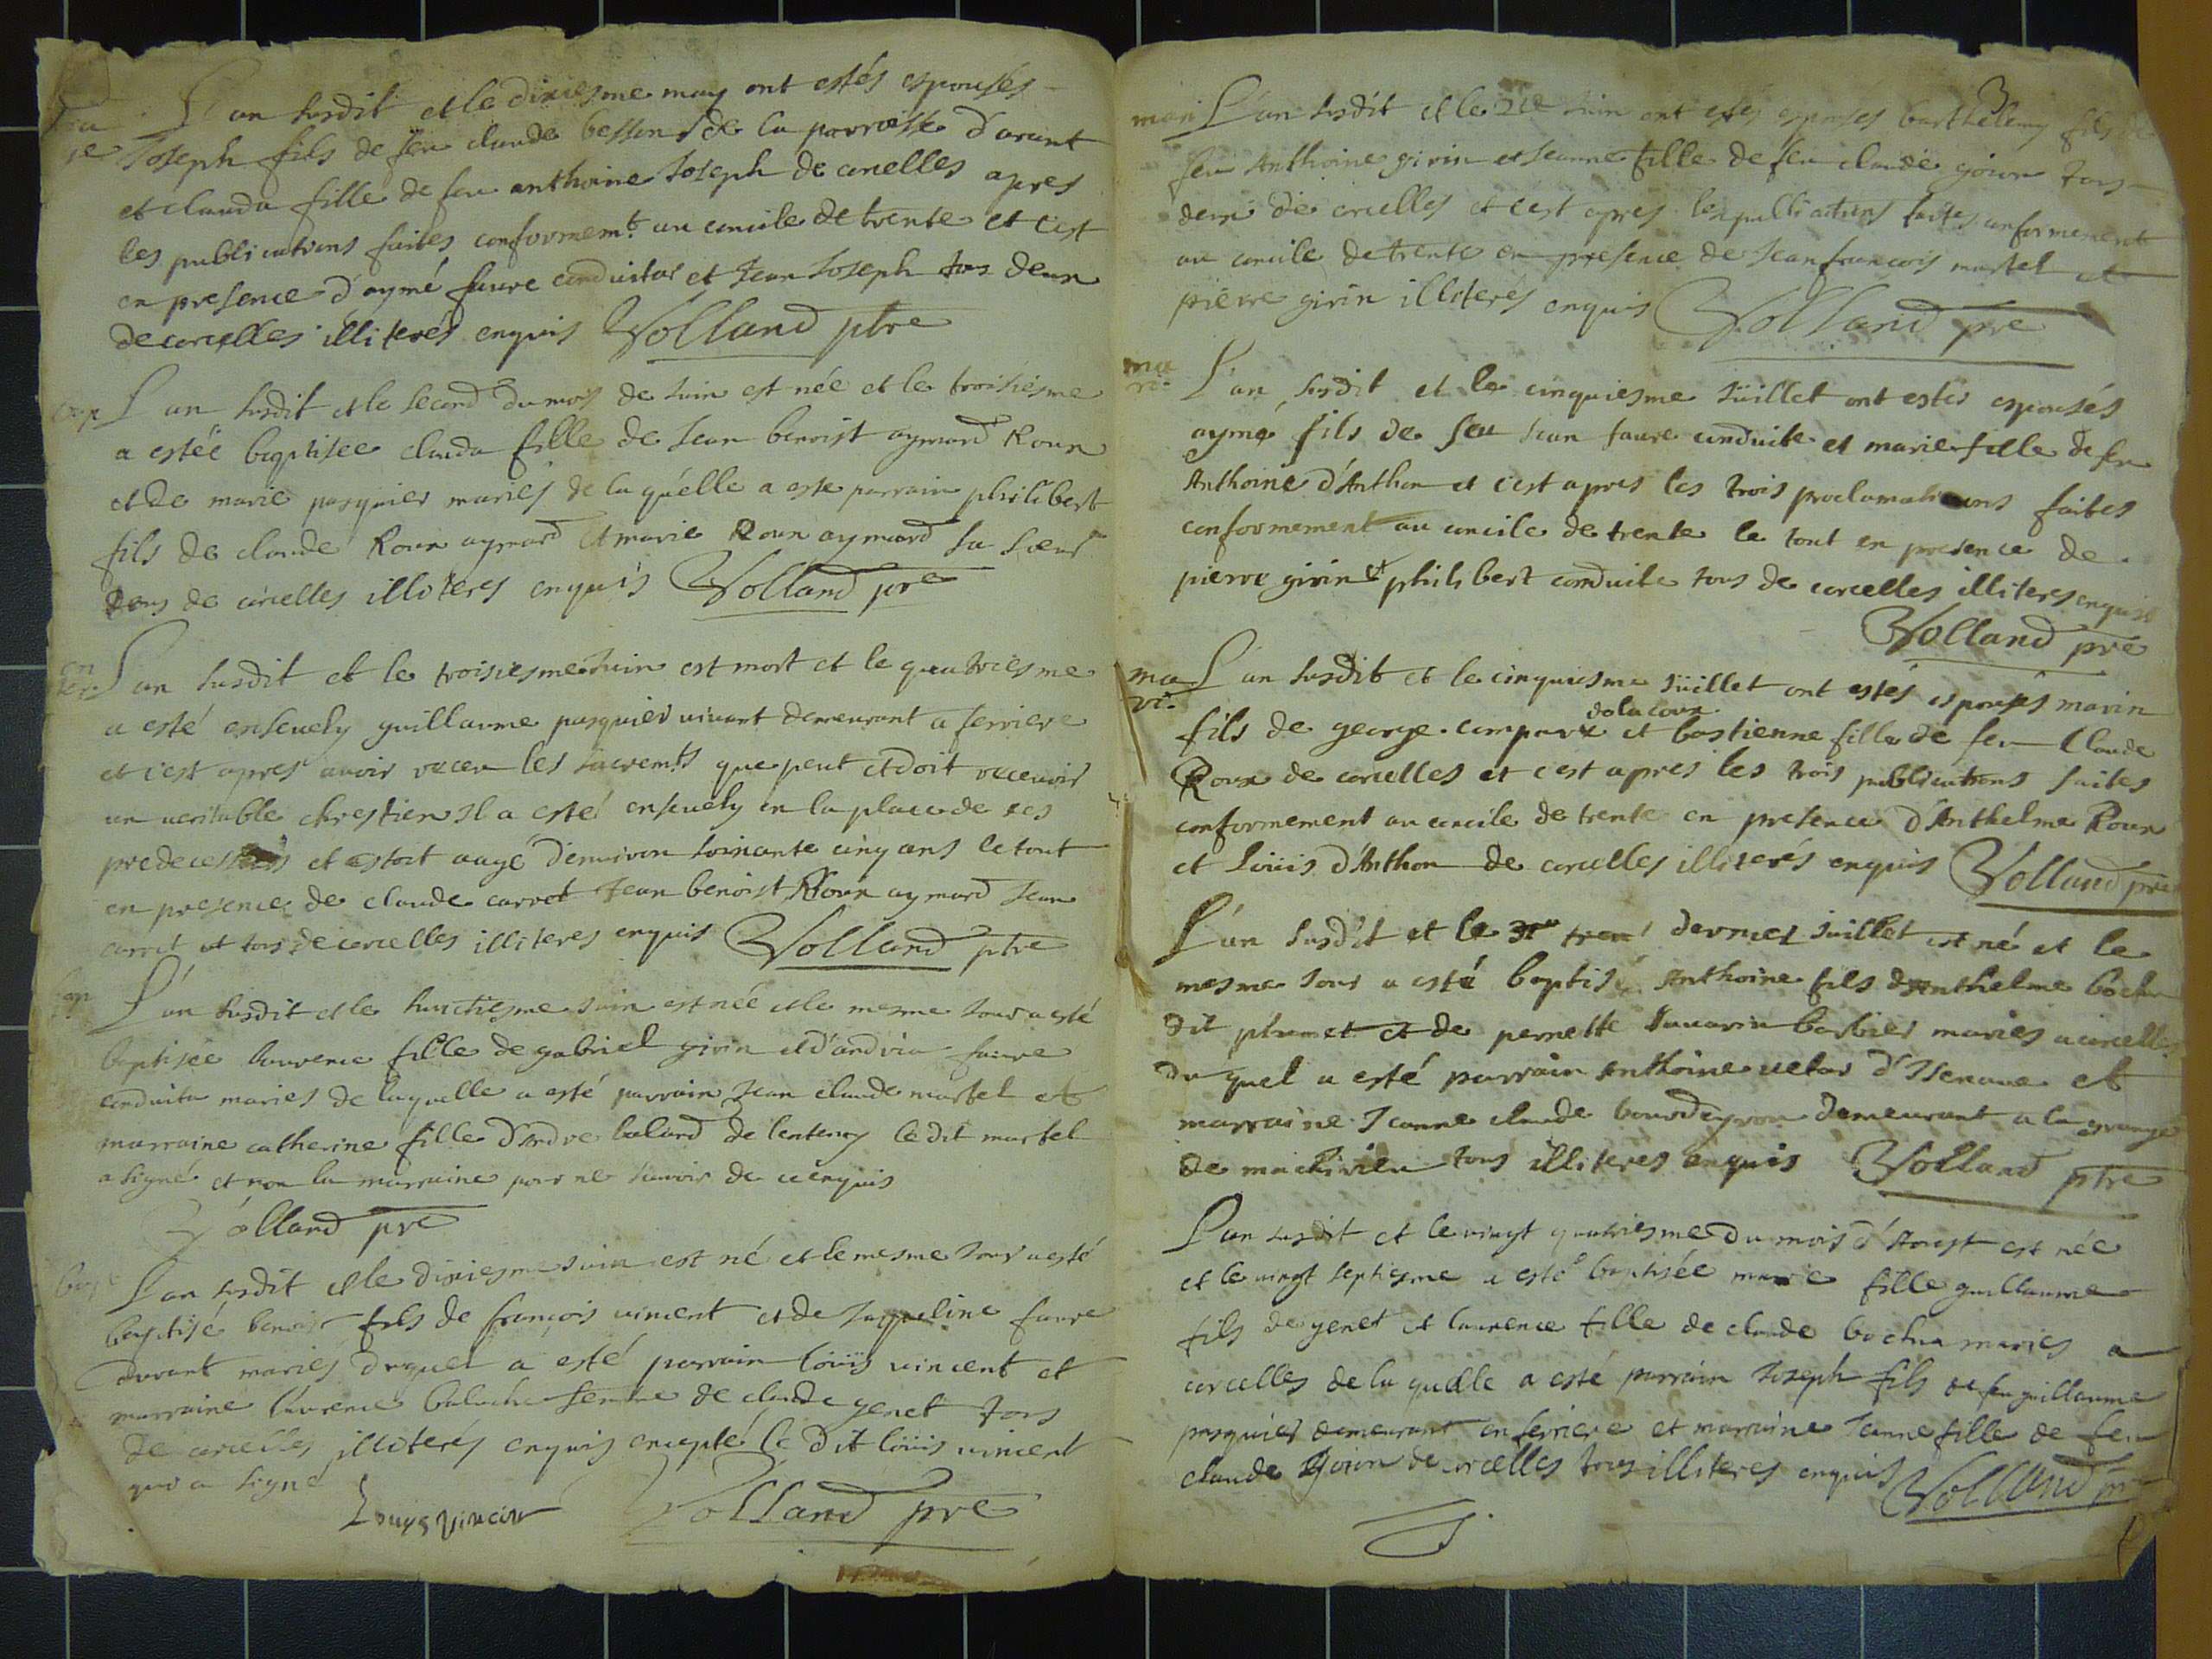 L'an susdit et le dixiesme may ont estés espousés
Joseph fils de feu claude besson de la parroisse d'arant
et clauda fille de feu anthoine Joseph de corcelles apres
les publications faites conformemt. au concile de trente et c'est
en presence d'aymé favre conduitor et Jean Joseph tos deux
de corcelles illiterés enquis Volland ptre
bap L'an susdit et le second du mois de Juin est née et le troisiesme
a estée baptisee clauda fille de Jean benoist aymard Roux
et de marie pasquier mariés de la quélle a este parrain philibert
fils de claude Roux aymard et marie Roux aymard sa soeur
tous de corcelles illiteres enquis Volland pre
en
ter L'an susdit et le troisiesme Juin est mort et le quatriesme
a esté ensevely guillaume pasquier vivant demeurant a ferriere
et c'est apres avoir receu les sacremts que peut et doit recevoir
un veritable chrestien Il a esté ensevely en la place de ses
predecesseurs et estoit aagé d'environ soixante cinq ans le tout
en presence de claude carrot Jean benoist Roux aymard Jean
carrot et tos de corcelles illiteres enquis Volland ptre
bap
L'an susdit et le huictiesme Juin est née et le mesme Jour a esté
baptisée laurence fille de gabriel girin et d'andria faivre
conduita mariés de laquelle a esté parrain Jean claude martel et
marraine catherine fille d'Andre balard de lentency le dit martel
a signé et non la marraine pour ne savoir de ce enquis
Volland pre
bap L'an susdit et le dixiesme Juin est né et le mesme Jour a esté
baptisé benoist fils de françois vincent et de Jaqueline favre
mariés duquel a esté parrain loüis vincent et
marraine laurence femme de claude genet tors
de corcelles illiterés enquis excepté le dit loüis vincent
qui a signé
Louys Vincent Volland pre
mari L'an susdit et le Juin ont estés espousés barthelemy fils de
feu Anthoine girin et Jeanne fille de feu claude goion tors
deux de corcelles et c'est apres les publications faites conformement
au concile de trente en presence de Jean françois martel et
pierre girin illiterés enquis Volland pre
ma
ri. L'an susdit et le cinquiesme Juillet ont estés espousés
aymé fils de feu Jean favre conduite et marie fille de feu
Anthoine d'Anthon et c'est apres les trois proclamations faites
conformement au concile de trente le tout en presence de
pierre girin et philibert conduite tous de corcelles illiteres enquis
Volland pre
ma
ri. L'an susdit et le cinquiesme Juillet ont estés espousés marin
delacoux
fils de george compare et bastienne fille de feu Claude
Roux de corcelles et c'est apres les trois publications faites
conformement au concile de trente en presence d'Anthelme Roux
et Loüis d'Anthon de corcelles illiterés enquis Volland pre
L'an susdit et le dernier Juillet est né et le
mesme Jour a esté baptisé Anthoine fils d'Anthelme bochu
dit plumet et de pernette Savarin barbier mariés a corcelles
du quel a esté parrain Anthoine d'Isenave et
marraine Jeanne claude bourdeyron demeurant a la grange
de tous illiteres enquis Volland ptre
L'an susdit et le vingt quatriesme du mois d'Aoust est née
et le vingt septiesme a esté baptisée marie fille guillaume
fils de genet et laurence fille de claude bochu mariés a
corcelles de la quelle a esté parrain Joseph fils de feu guillaume
pasquier demeurant en ferriere et marraine Jeanne fille de feu
claude goion de corcelles tous illiteres enquis Volland pr